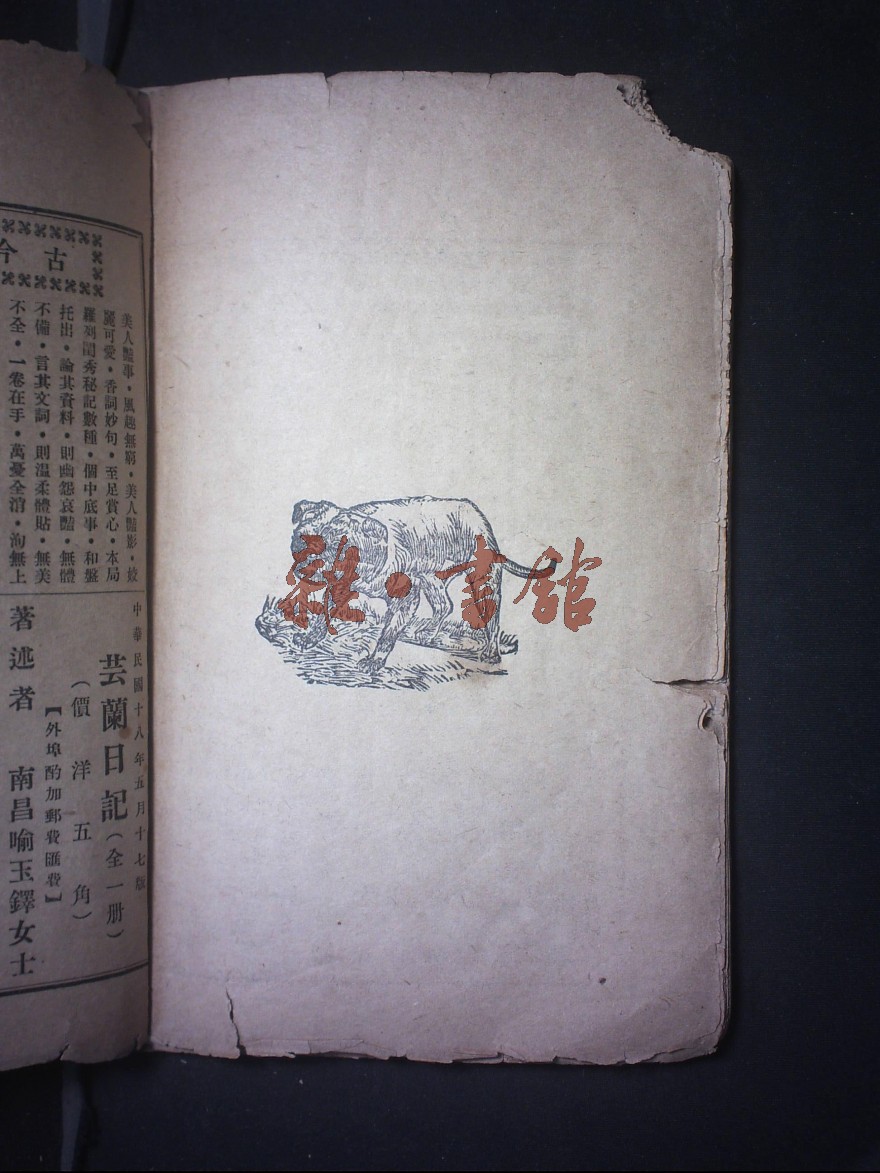 古今
美人豔事·風趣無窮·美人豔影·姣
麗可愛·香詞妙句·至足賞心·本局
羅列閨秀秘記數種·個中底事·和盤
托出·論其資料·則幽怨哀豔·無體
不備·言其文詞·則温柔體貼·無美
不全·一卷在手·萬憂全消·洵無上
中華民國十八年五月十七版
芸蘭日記(全一册)
(價洋五角)
【外埠酌加郵費匯費】
著述者 南昌喻玉鐸女士
雜·書館